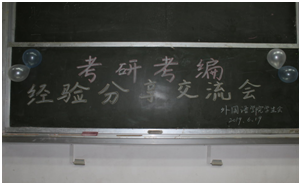 考研考编
经验分享交流会
外国语学院学生会